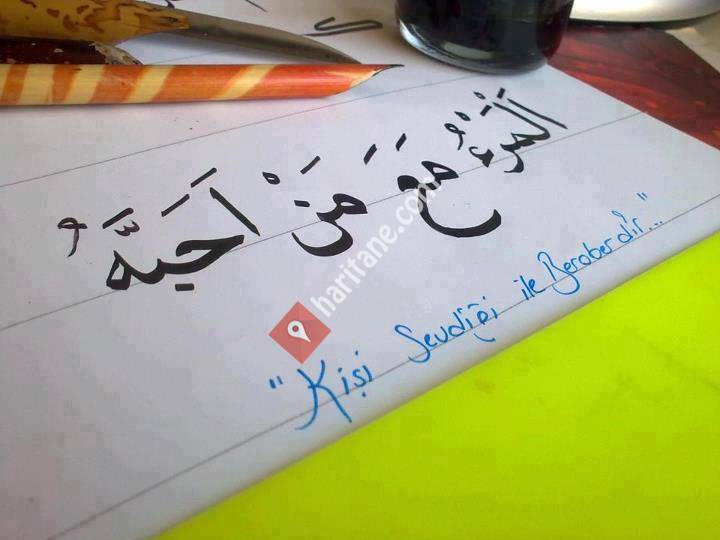 اَلْمَرْءُ مَعَ مَنْ اَحَبَّهُ
"Kişi Sevdiği ile Beraberdir..."
harifane.com